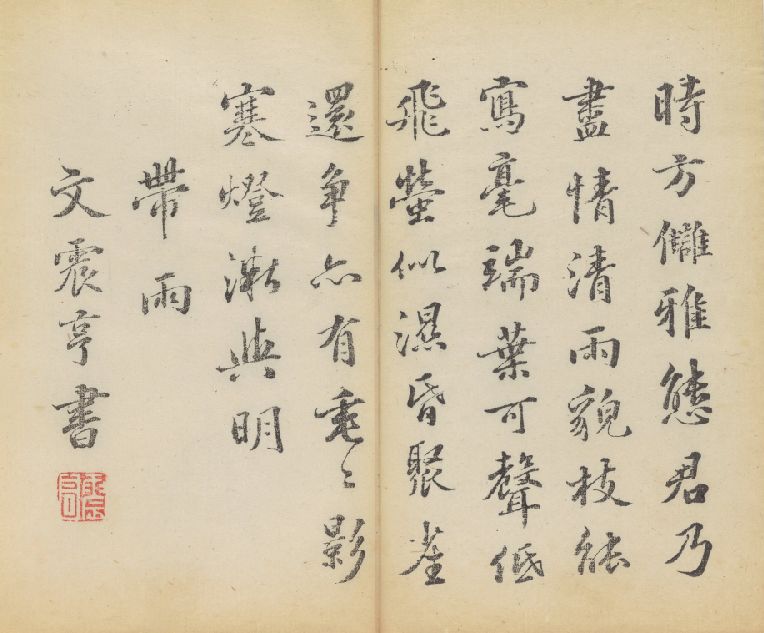 時方雅態君乃
盡情清雨貌枝能
寫毫端葉可聲低
飛螢似濕昏聚雀
還爭亦有影
寒燈漸與明
帶雨
文震亨書